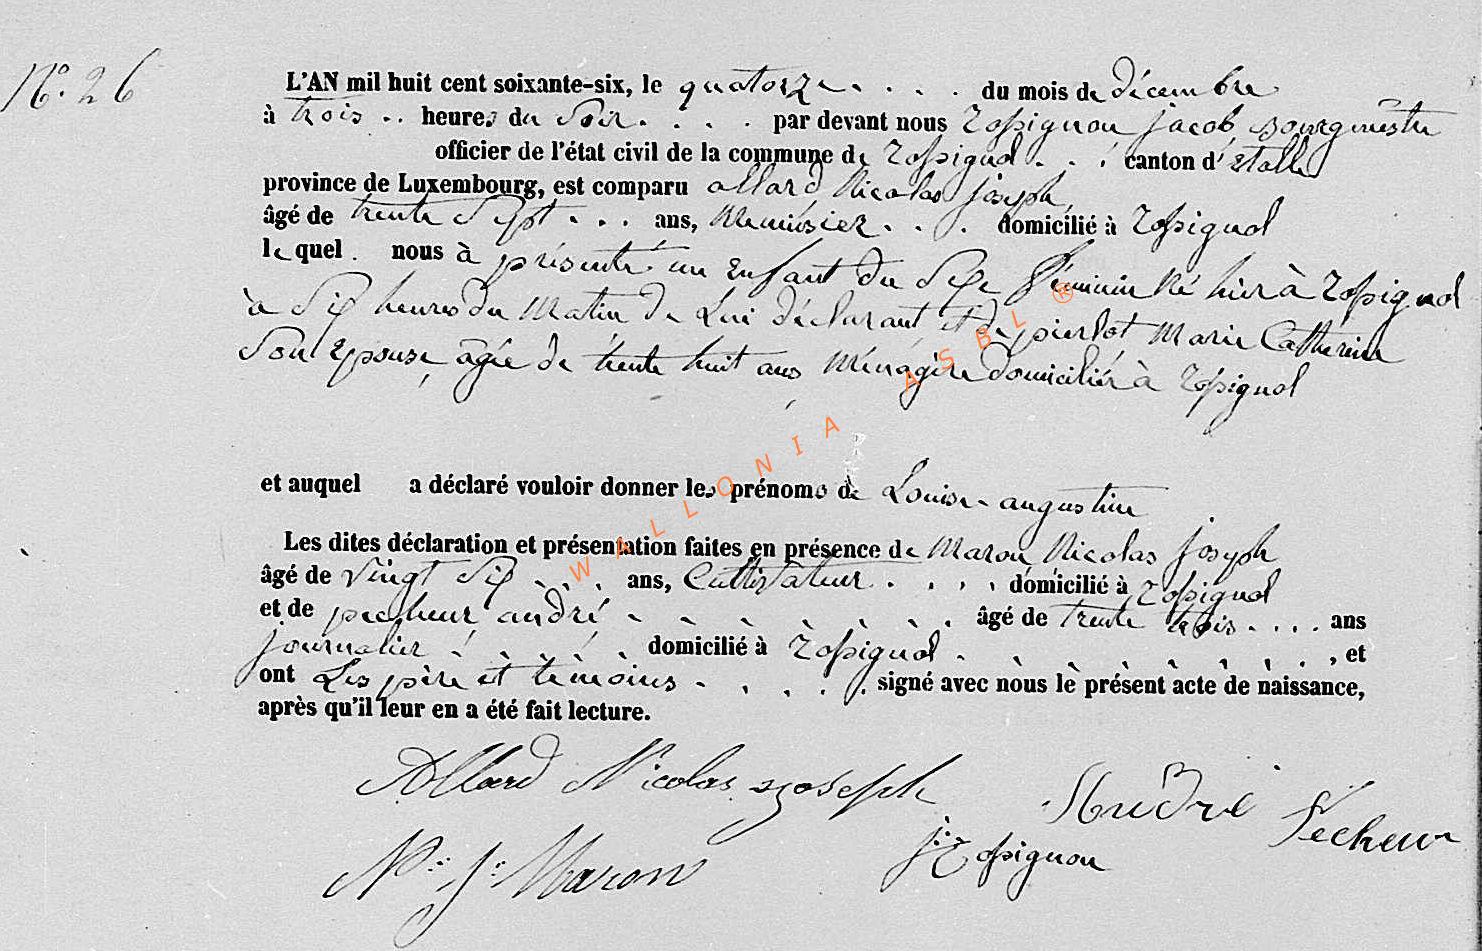 N° 26
L'AN mil huit cent soixante-six, le quatorze . . . . du mois de décembre
à trois .. heures du Soir . . . . par devant nous Rossignon jacob, Bourgmestre
officier de l'état civil de la commune de Rossignol . . . canton d'Etalle
province de Luxembourg, est comparu allard Nicolas joseph
âgé de trente Sept . . . ans, Menuisier . . . domicilié à Rossignol
lequel nous à présenté un Enfant du Sexe féminin Né hier à Rossignol
à Six heures du Matin de Lui déclarant et de pierlot Marie Catherine
Son Epouse, âgée de trente huit ans Ménagère domiciliés à Rossignol
et auquel a déclaré vouloir donner les prénoms de Louise-augustine
Les dites déclaration et présentation faites en présence de Maron Nicolas joseph
âgé de vingt Six . . . ans, Cultivateur . . . . domicilié à Rossignol
et de pecheur andré . . . . . . . . âgé de trente trois . . . . ans
journalier . . . . . domicilié à Rossignol . . . . . . . . , et
ont Les père et témoins . . . . . signé avec nous le présent acte de naissance,
après qu'il leur en a été fait lecture.
Allard Nicolas Joseph
André Pecheur
j. Rossignon
N.: J.: Maron
WALLONIA ASBL ®